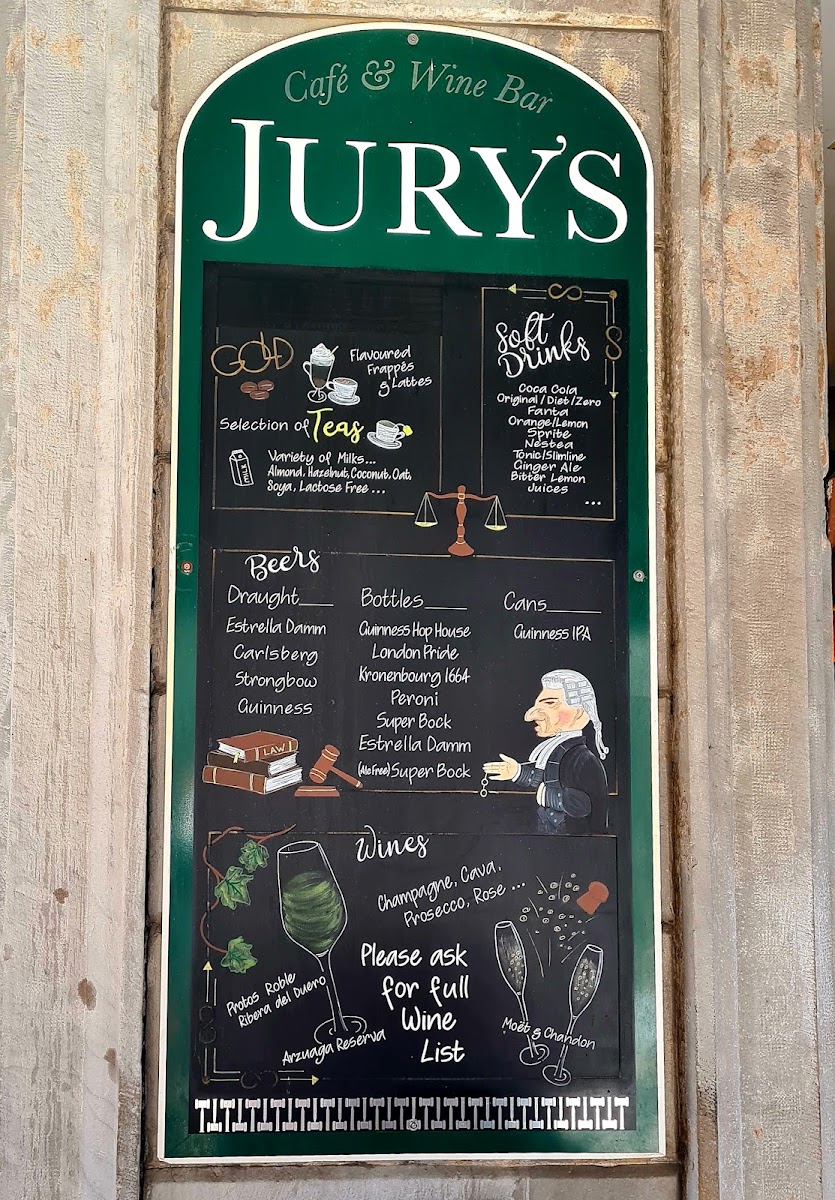 Café & Wine Bar
JURY'S
GOLD
Flavoured
Frappès
& Lattes
Selection of Teas
MILK
Variety of Milks...
Almond, Hazelnut, Coconut, Oat,
Soya, Lactose Free ...
Soft
Drinks
Coca Cola
Original / Diet / Zero
Fanta
Orange/Lemon
Sprite
Nestea
Tonic/Slimline
Ginger Ale
Bitter Lemon
Juices
...
Beers
Draught
Estrella Damm
Carlsberg
Strongbow
Guinness
Bottles
Guinness Hop House
London Pride
Kronenbourg 1664
Peroni
Super Bock
Estrella Damm
(Alc Free) Super Bock
Cans
Guinness IPA
LAW
Wines
Champagne, Cava,
Prosecco, Rose ...
Please ask
for full
Wine
List
Protos Roble
Ribera del Duero
Arzuaga Reserva
Moët & Chandon